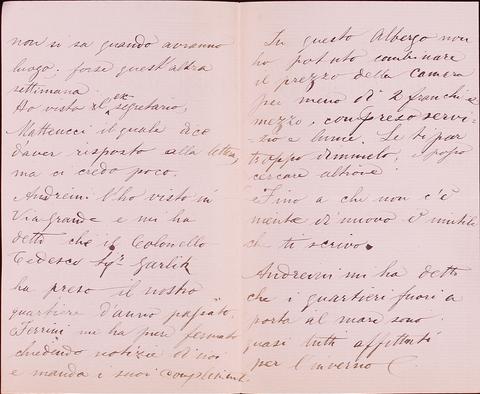 non si sa quando avranno
luogo. forse quest'altra
settimana.
Ho visto l'ex segretario,
Matteucci il quale dice
d'aver risposto alla lettera,
ma ci credo poco.
Andreini l'ho visto in
Via Grande e mi ha
detto che il Colonello
Tedesco Sigr Garlik
ha preso il nostro
quartiere d'anno passato.
Ferrini mi ha pure fermato
chiedendo notizie di noi
e manda i suoi complimenti.
In questo Albergo non
ho potuto combinare
il prezzo della camera
per meno di 2 franchi e
mezzo, compreso servi-
zio e lume. Se ti par
troppo dimmelo, e posso
cercare altrove.
Fino a che non c'è
niente di nuovo è inutile
che ti scrivo.
Andreini mi ha detto
che i quartieri fuori a
porta al mare sono
quasi tutti affittati
per l'inverno